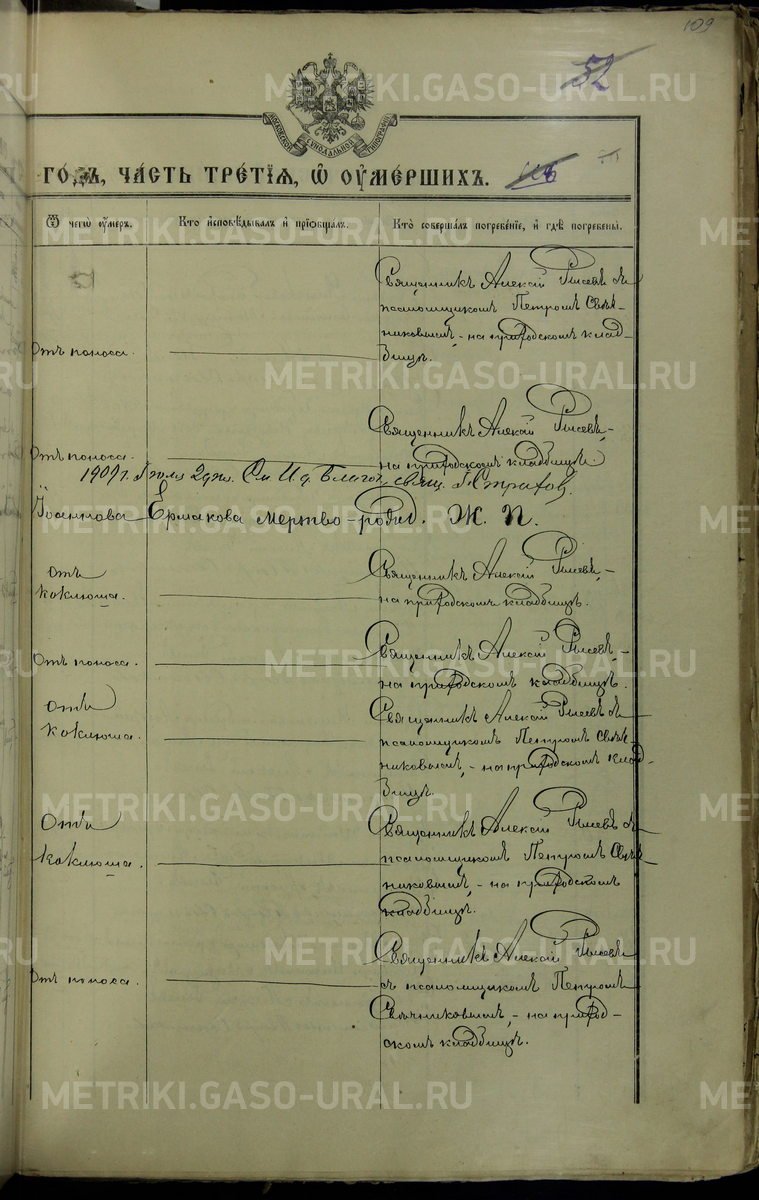 109
52
МОСКОВСКОЙ СѴНОДАЛЬНОЙ ТИПОГРАФІИ
ГО́ДЪ, ЧА́СТЬ ТРЕ́ТІѦ, Ѿ ОУ҆МЕ́РШИХЪ.
Ѿ чегѡ̀ оу҆́меръ.
Кто̀ и҆сповѣ́дывалъ и҆ прїѡбща́лъ.
Кто̀ соверша́лъ погребе́нїе, и҆ гдѣ̀ погребены̀.
Отъ поноса.
Священникъ Алексій Рысевъ съ
псаломщикомъ Петромъ Свѣч-
никовымъ, - на приходскомъ клад-
бищѣ.
Отъ поноса.
Священникъ Алексій Рысевъ, -
на приходскомъ кладбищѣ.
1909 г. Іюля 2 дня. См. И. д. Благоч. свящ. І. Стратов.
Іоаннова Ермакова мертво-рожд. Ж. П.
Отъ
коклюша.
Священникъ Алексій Рысевъ, -
на приходскомъ кладбищѣ.
Отъ поноса.
Священникъ Алексій Рысевъ, -
на приходскомъ кладбищѣ.
Отъ
коклюша.
Священникъ Алексій Рысевъ съ
псаломщикомъ Петромъ Свѣч-
никовымъ, - на приходскомъ клад-
бищѣ.
Отъ
коклюша.
Священникъ Алексій Рысевъ съ
псаломщикомъ Петромъ Свѣч-
никовымъ, - на приходскомъ
кладбищѣ.
Отъ поноса.
Священникъ Алексій Рысевъ
съ псаломщикомъ Петромъ
Свѣчниковымъ, - на приход-
скомъ кладбищѣ.
METRIKI.GASO-URAL.RU